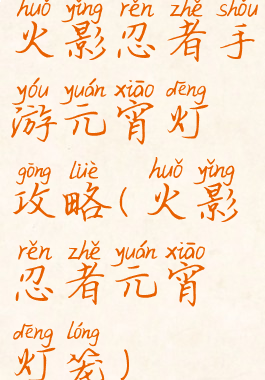 huǒ yǐng rěn zhě shǒu
火影忍者手
yóu yuán xiāo dēng
游元宵灯
gōng lüè huǒ yǐng
攻略(火影
rěn zhě yuán xiāo
忍者元宵
dēng lóng
灯笼)